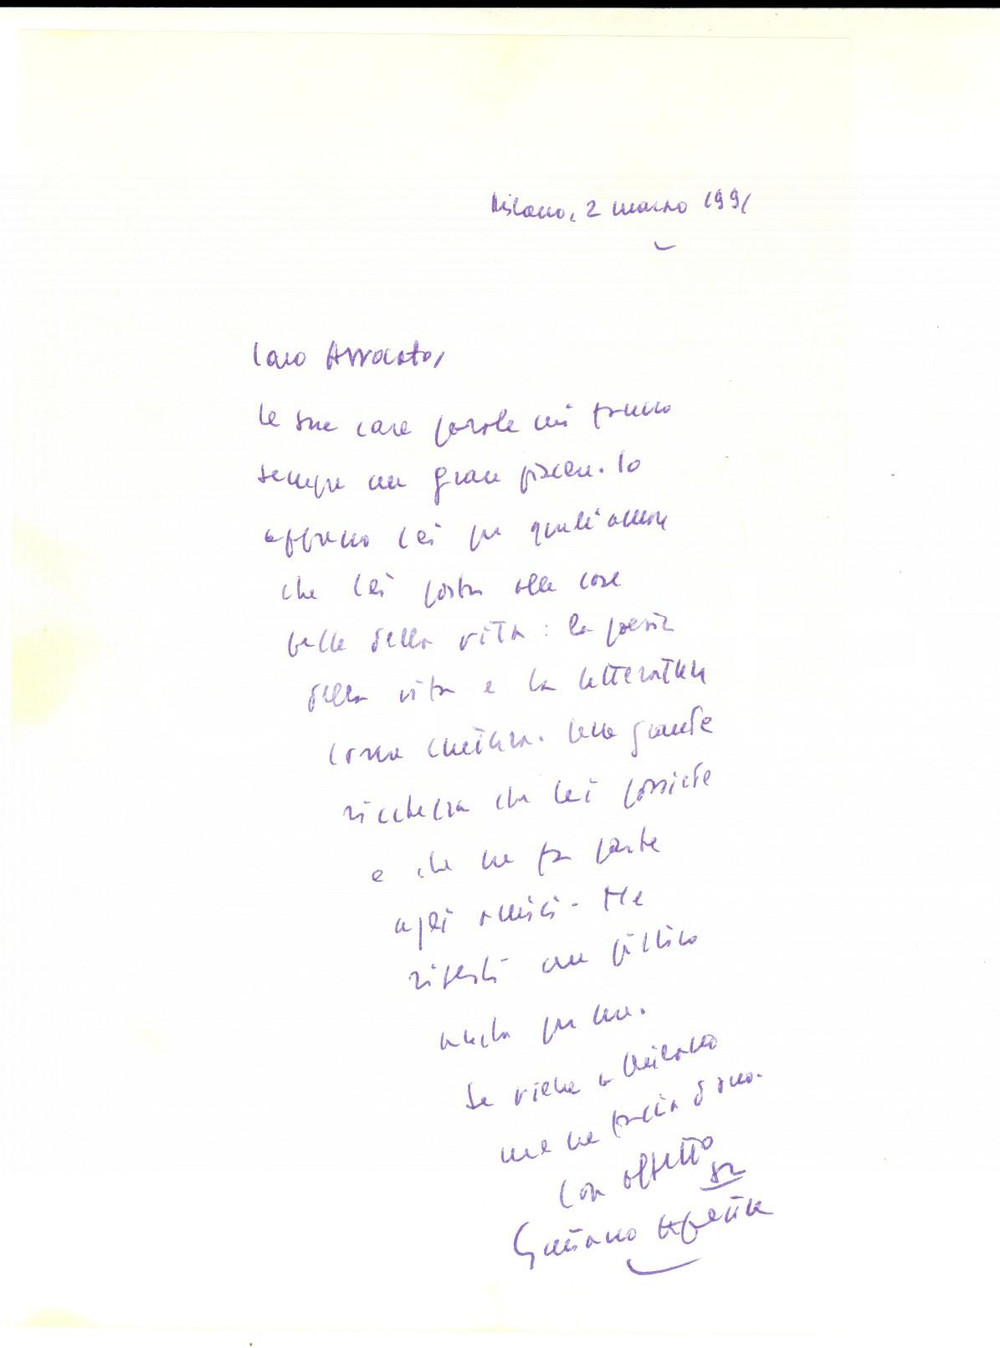 Milano, 2 marzo 1991
Caro Avvocato,
le sue care parole mi fanno
sempre un gran piacere. Io
apprezzo Lei per quell'amore
che Lei porta alle cose
belle della vita: la poesia
della vita e la letteratura
come
grande
ricchezza che Lei possiede
e che ne fa parte
agli amici. Me
un
anche per me.
Se viene a Milano
me ne faccia dono.
Con affetto
Gaetano Afeltra